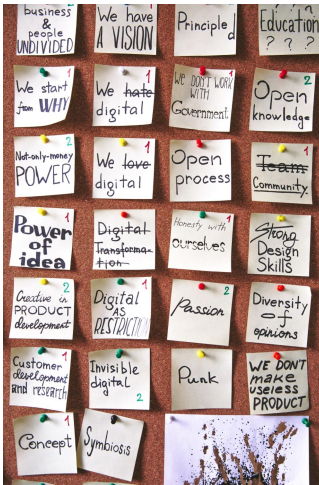 business
&
people
UNDIVIDED
We have
A VISION
Principled
Education
? ? ?
1
We start
from WHY
1
We hate
digital
1
WE DON'T WORK
WITH
Government
2
Open
knowledge
2
Not-only-money
POWER
1
We love
digital
Open
process
1
Team
Community
1
Power
of
idea
Digital
Transforma-
tion
1
Honesty with
ourselves
Strong
Design
Skills
2
Creative in
PRODUCT
development
1
Digital
AS
RESTRICTION
2
Passion
Diversity
of
opinions
1
Customer
development
and research
Invisible
digital
2
Punk
WE DONT
make
useless
PRODUCT
1
Concept
Symbiosis